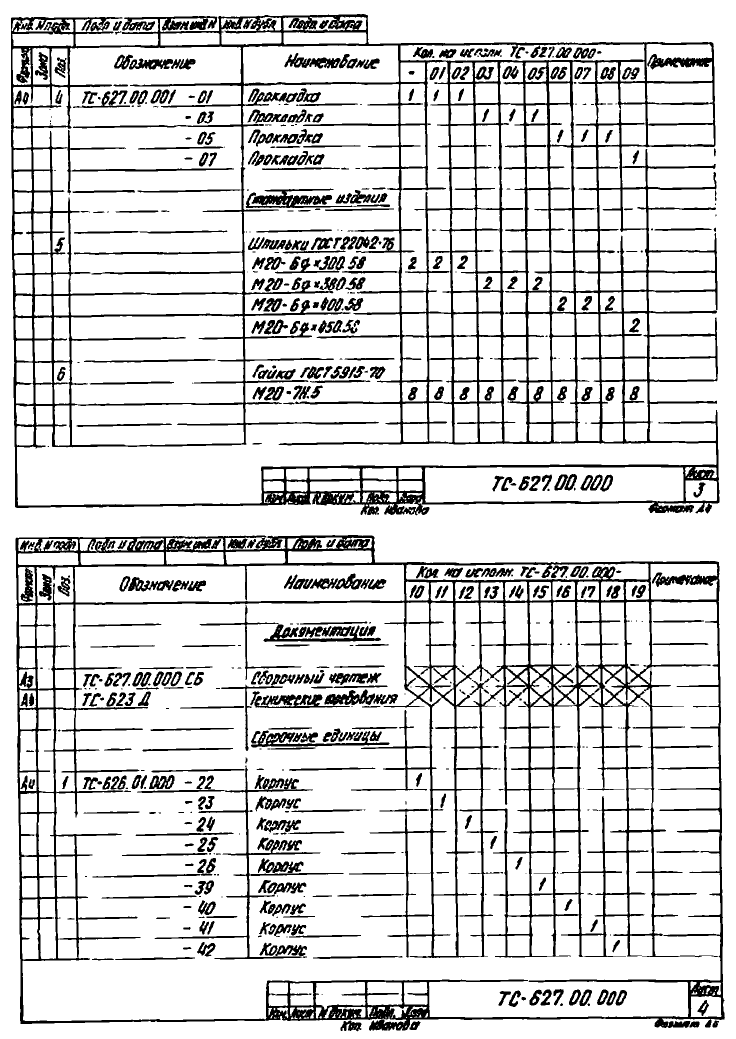 Инв. N подл. Подп и дата Взам. инв. N Инв. N дубл. Подп и дата
Формат Зона Поз. Обозначение Наименование Кол. на исполн. ТС-627.00.000- Примечание
- 01 02 03 04 05 06 07 08 09
А4 4 ТС-627.00.001 -01 Прокладка 1 1 1
-03 Прокладка 1 1 1
-05 Прокладка 1 1 1
-07 Прокладка 1
Стандартные изделия
5 Шпильки ГОСТ 22042-76
М20-6g×300.58 2 2 2
М20-6g×380.58 2 2 2
М20-6g×400.58 2 2 2
М20-6g×450.58 2
6 Гайка ГОСТ 5915-70
М20-7Н.5 8 8 8 8 8 8 8 8 8 8
ТС-627.00.000 Лист
3
Изм. Лист N докум. Подп. Дата
Коп. Иванова Формат А4
Инв. N подл Подп и дата Взам. инв. N Инв. N дубл Подп. и дата
Формат Зона Поз. Обозначение Наименование Кол. на исполн. ТС-627.00.000- Примечание
10 11 12 13 14 15 16 17 18 19
Документация
А3 ТС-627.00.000 СБ Сборочный чертеж
А4 ТС-623 Д Технические требования
Сборочные единицы
А4 1 ТС-626.01.000 -22 Корпус 1
-23 Корпус 1
-24 Корпус 1
-25 Корпус 1
-26 Корпус 1
-39 Корпус 1
-40 Корпус 1
-41 Корпус 1
-42 Корпус 1
ТС-627.00.000 Лист
4
Изм. Лист N докум. Подп. Дата
Коп. Иванова Формат